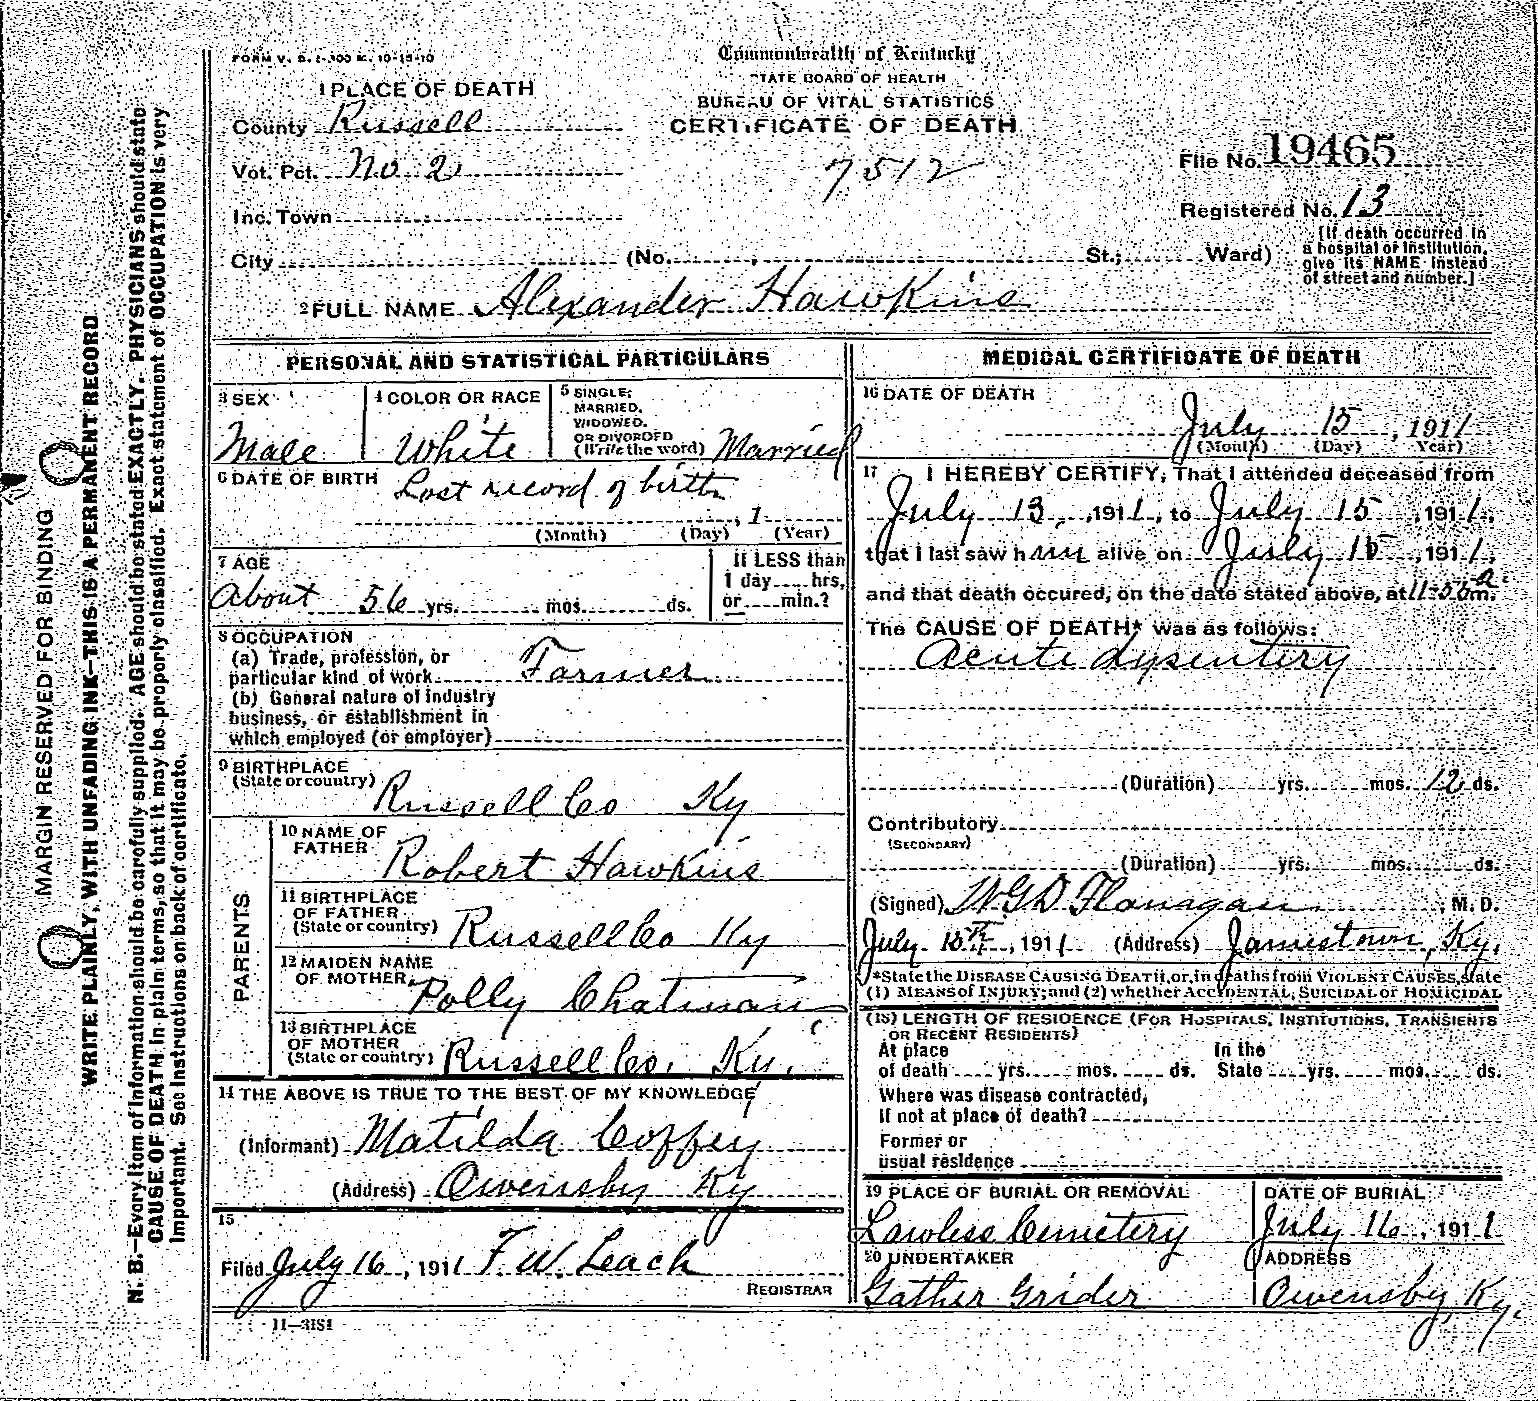 FORM V. S. 1-300 M. 10-15-10
Commonwealth of Kentucky
STATE BOARD OF HEALTH
BUREAU OF VITAL STATISTICS
CERTIFICATE OF DEATH
7512
File No. 19465
Registered No. 13
[If death occurred in
a hospital or institution,
give its NAME instead
of street and number.]
1 PLACE OF DEATH
County Russell
Vot. Pct. No 2
Inc. Town
City (No. , St.; Ward)
2 FULL NAME Alexander Hawkins
PERSONAL AND STATISTICAL PARTICULARS
3 SEX
Male
4 COLOR OR RACE
White
5 SINGLE,
MARRIED,
WIDOWED,
OR DIVORCED
(Write the word) Married
6 DATE OF BIRTH Lost record of birth
, 1
(Month) (Day) (Year)
7 AGE
About 56 yrs. mos. ds.
If LESS than
1 day hrs.
or min.?
8 OCCUPATION
(a) Trade, profession, or
particular kind of work Farmer
(b) General nature of industry
business, or establishment in
which employed (or employer)
9 BIRTHPLACE
(State or country) Russell Co Ky
PARENTS
10 NAME OF
FATHER Robert Hawkins
11 BIRTHPLACE
OF FATHER
(State or country) Russell Co Ky
12 MAIDEN NAME
OF MOTHER Polly Chatman
13 BIRTHPLACE
OF MOTHER
(State or country) Russell Co. Ky.
14 THE ABOVE IS TRUE TO THE BEST OF MY KNOWLEDGE
(Informant) Matilda Coffey
(Address) Owensby Ky
15
Filed July 16, 1911 F. W. Leach
REGISTRAR
11-3151
MEDICAL CERTIFICATE OF DEATH
16 DATE OF DEATH
July 15, 1911
(Month) (Day) Year)
17 I HEREBY CERTIFY, That I attended deceased from
July 13, , 1911, to July 15, 1911,
that I last saw him alive on July 15, 1911,
and that death occured, on the date stated above, at 11-50 a m.
The CAUSE OF DEATH* was as follows:
Acute dysentery
(Duration) yrs. mos. 12 ds.
Contributory
(SECONDARY)
(Duration) yrs. mos. ds.
(Signed) W G D Flanagan, M. D.
July 15th, 1911 (Address) Jamestown, Ky.
*State the DISEASE CAUSING DEATH, or, in deaths from VIOLENT CAUSES, state
(1) MEANS OF INJURY; and (2) whether ACCIDENTAL, SUICIDAL or HOMICIDAL
(18) LENGTH OF RESIDENCE (FOR HOSPITALS, INSTITUTIONS, TRANSIENTS
OR RECENT RESIDENTS)
At place In the
of death yrs. mos. ds. State yrs. mos. ds.
Where was disease contracted,
If not at place of death?
Former or
usual residence
19 PLACE OF BURIAL OR REMOVAL
Lawless Cemetery
DATE OF BURIAL
July 16, 1911
20 UNDERTAKER
Gather Grider
ADDRESS
Owensby, Ky.
MARGIN RESERVED FOR BINDING
WRITE PLAINLY, WITH UNFADING INK—THIS IS A PERMANENT RECORD
N. B.—Every item of information should be carefully supplied. AGE should be stated EXACTLY. PHYSICIANS should state
CAUSE OF DEATH in plain terms, so that it may be properly classified. Exact statement of OCCUPATION is very
important. See instructions on back of certificate.